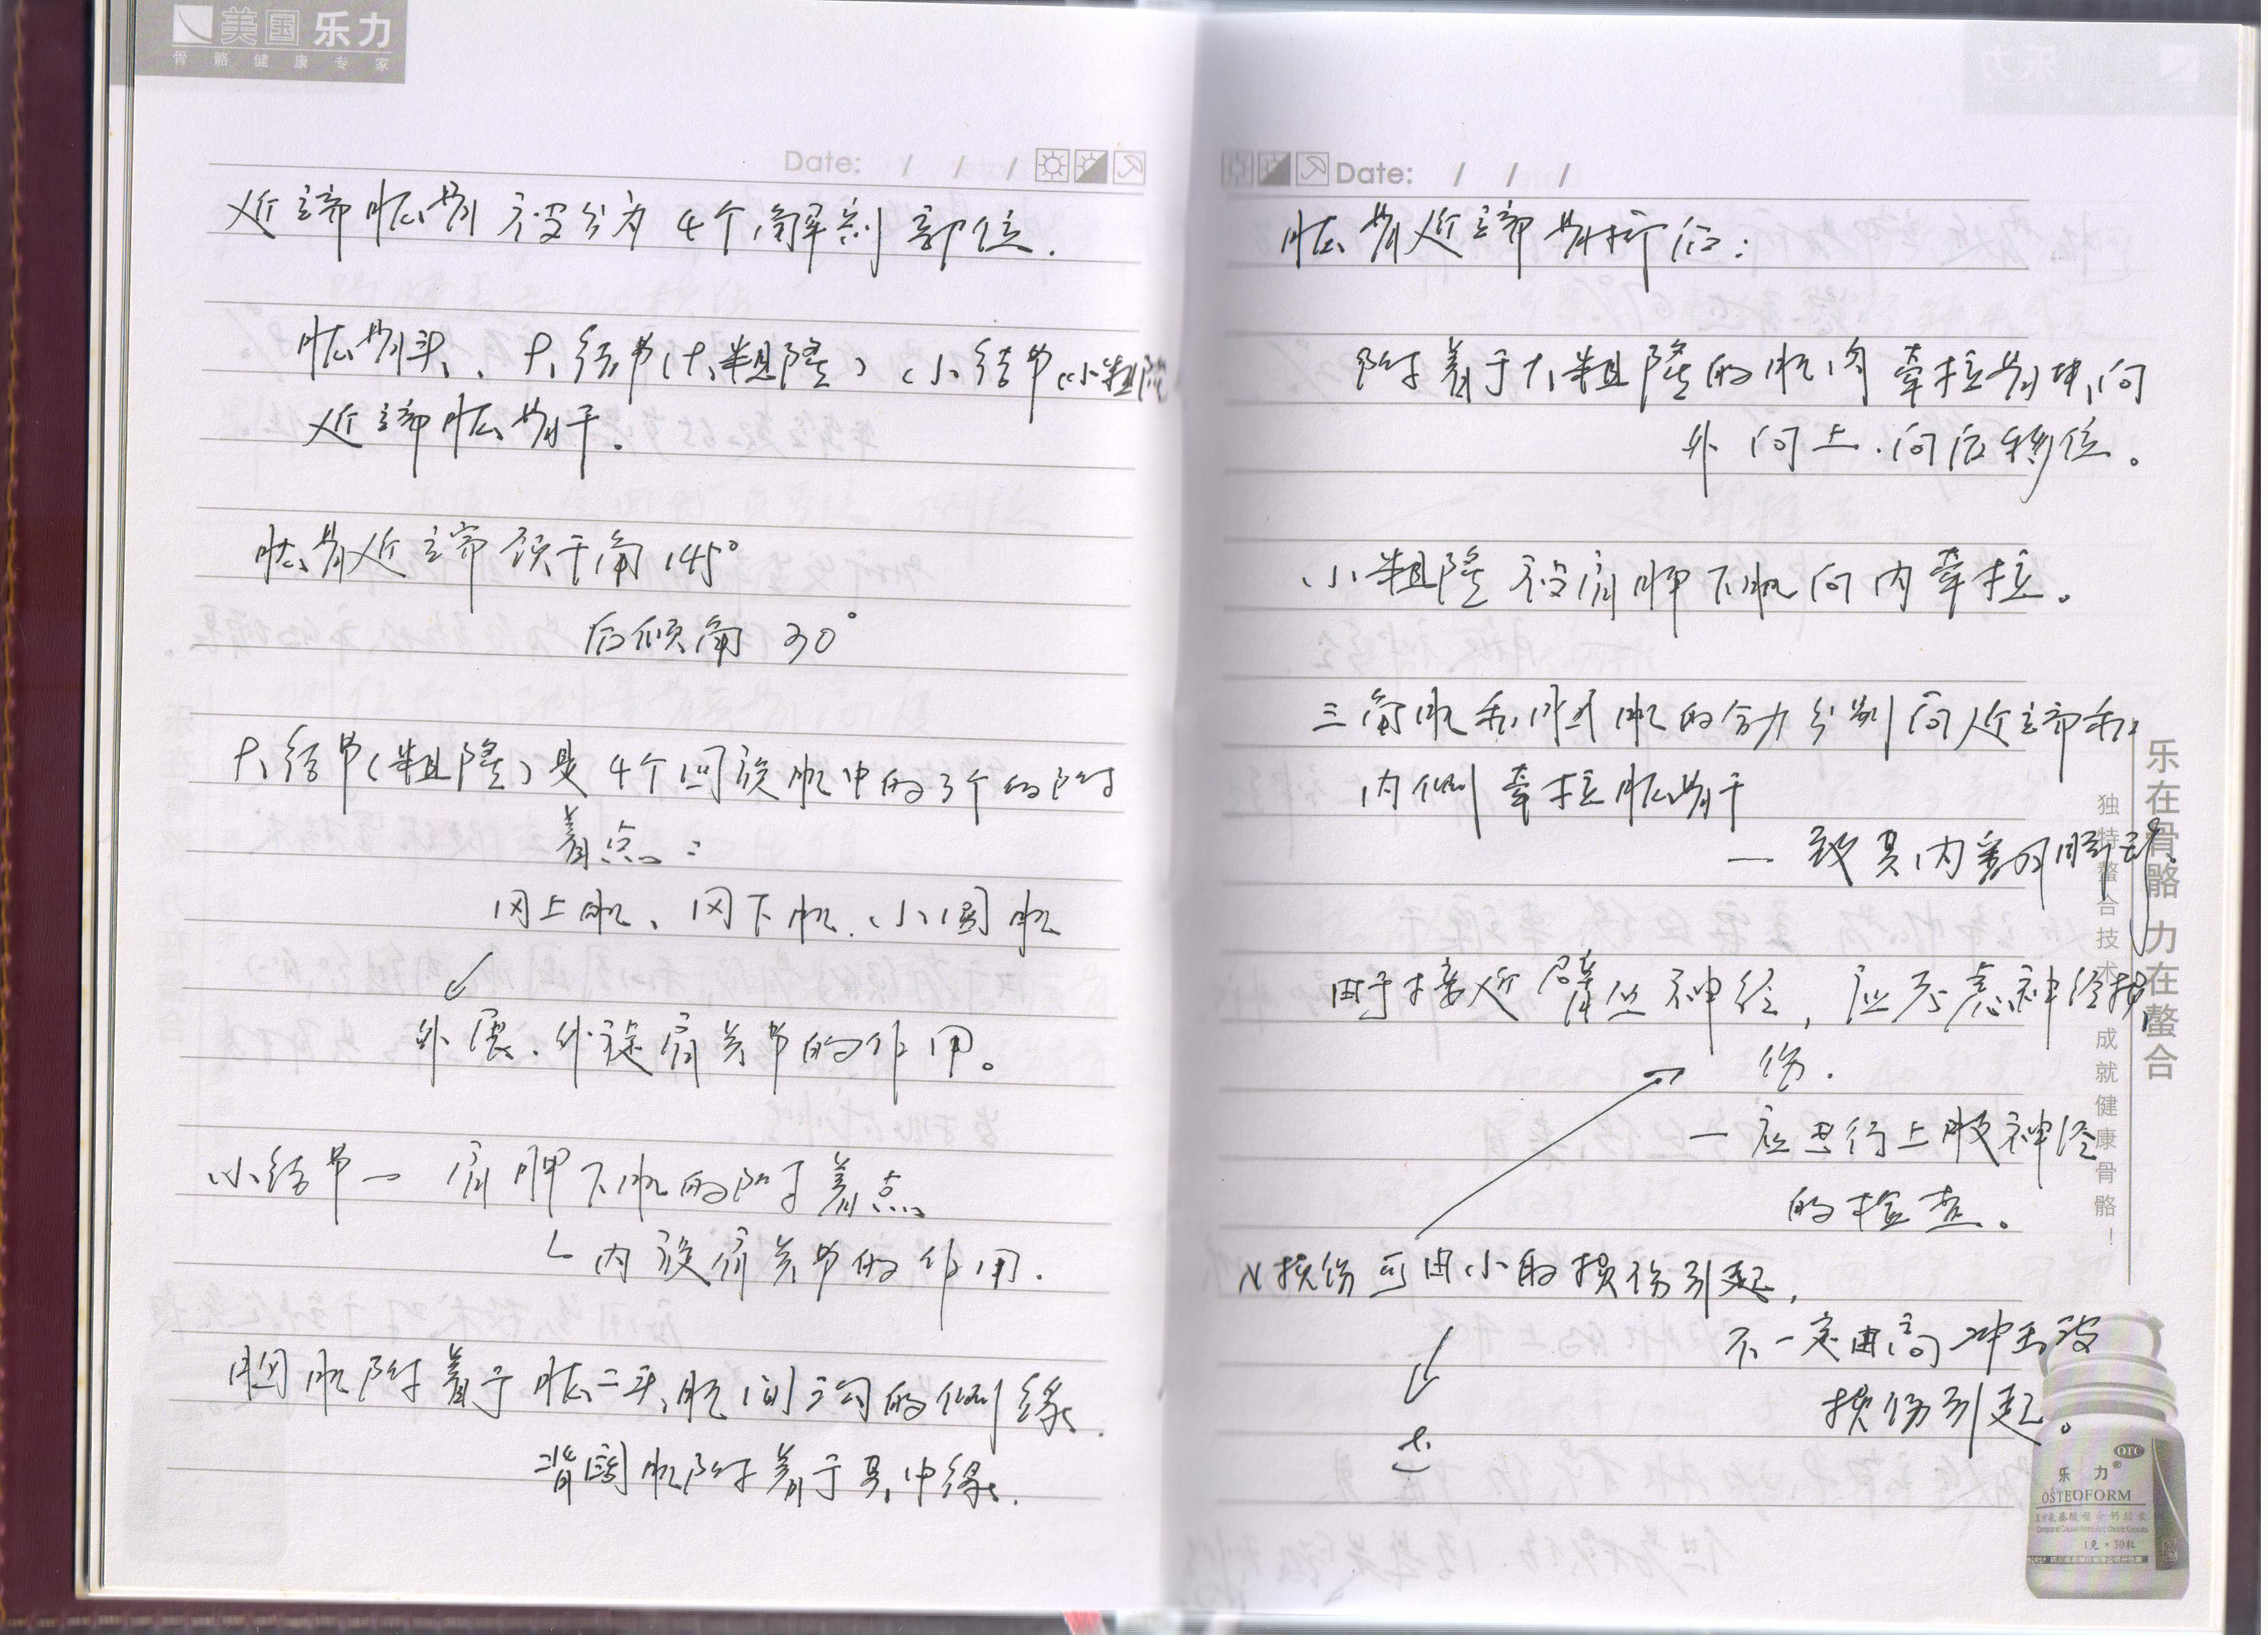 美国 乐力
骨骼健康专家
Date: / / /
近端肱骨被分为4个解剖部位.
肱骨头、大结节(大粗隆)、小结节(小粗隆
近端肱骨干。
肱骨近端颈干角145°
后倾角30°
大结节(粗隆)是4个回旋肌中的3个的附
着点:
冈上肌、冈下肌、小圆肌
外展、外旋肩关节的作用。
小结节— 肩胛下肌的附着点
内旋肩关节的作用.
胸肌附着于肱二头肌间沟的侧缘.
背阔肌附着于其中缘.
Date: / / /
肱骨近端骨折后:
附着于大粗隆的肌肉牵拉骨块向
外 向上、向后移位。
小粗隆被肩胛下肌向内牵拉。
三角肌和胸大肌的合力分别向近端和
内侧牵拉肱骨干
— 致其内
由于接近臂丛神经, 应考虑神经损
伤.
— 应进行上肢神经
的检查。
N损伤可由小的损伤引起,
不一定由高冲击波
损伤引起。
乐在骨骼 力在螯合
独特螯合技术 成就健康骨骼!
OTC
乐力®
OSTEOFORM
1克×30粒